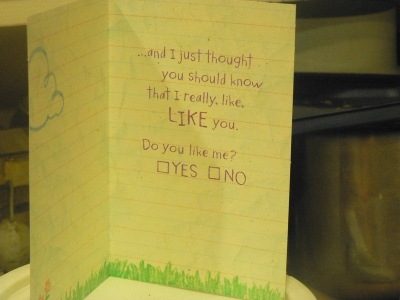 ...and I just thought
you should know
that I really, like,
LIKE you.
Do you like me?
☐YES ☐NO